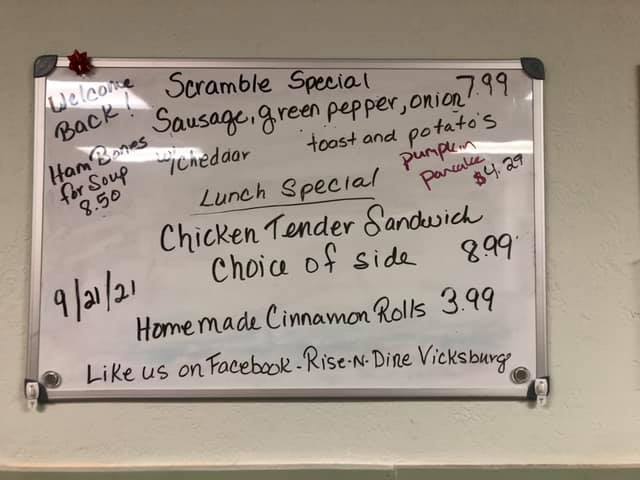 Welcome
Back!
Scramble Special 7.99
Sausage, green pepper, onion
w/cheddar toast and potato's
Ham Bones
for Soup
8.50
pumpkin
pancake
$4.29
Lunch Special
Chicken Tender Sandwich
Choice of side 8.99
9/21/21
Homemade Cinnamon Rolls 3.99
Like us on Facebook - Rise-N-Dine Vicksburg